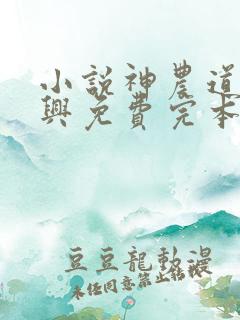 小說神農道
興免費完本
豆豆龍動漫
未任同意禁止轉載